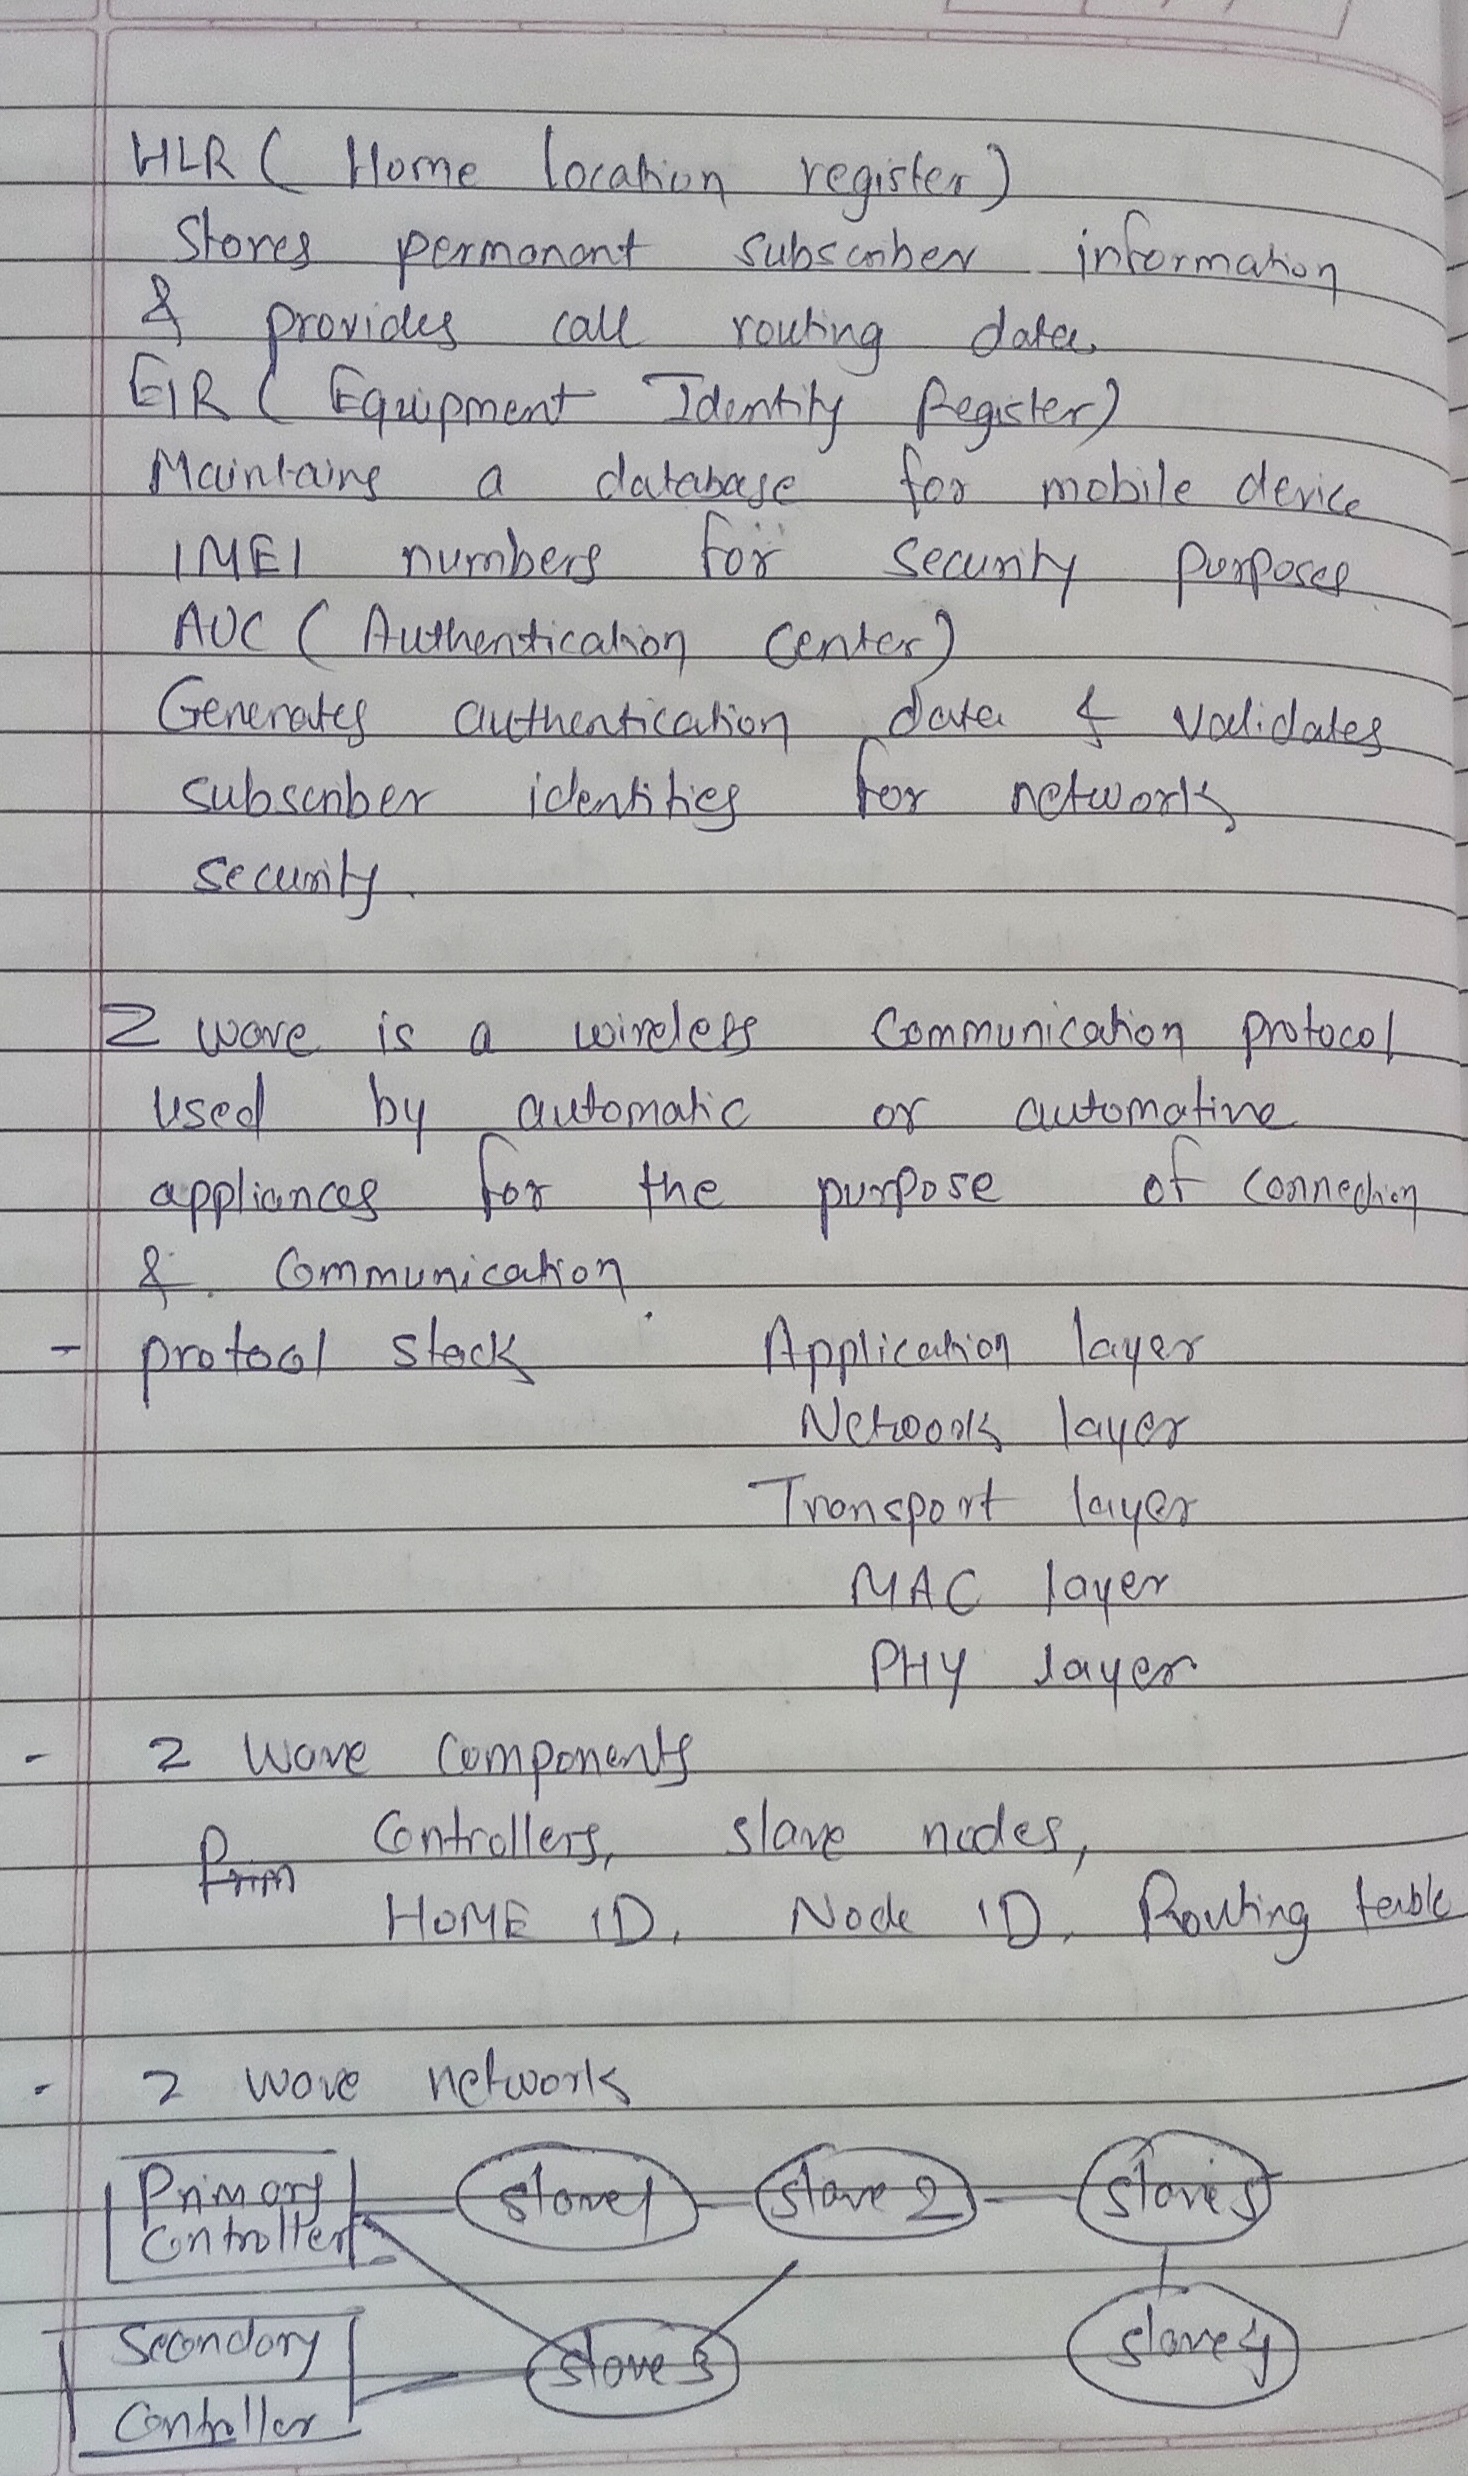 HLR ( Home location register)
Stores permanant subscriber information
& provides call routing data
EIR ( Equipment Identity Register)
Maintains a database for mobile device
IMEI numbers for security purposes
AUC ( Authentication Center)
Generates authentication data & validates
subscriber identities for network
security.
Z wave is a wireless Communication protocol
used by automatic or automative
appliances for the purpose of connection
& Communication
- protocol stack Application layer
Network layer
Transport layer
MAC layer
PHY layer
- Z wave components
Controllers, slave nodes,
Prim
HOME ID, Node ID, Routing table
- Z wave network
Primary slave1 slave 2 slave 5
Controller
Secondary slave 3 slave 4
Controller